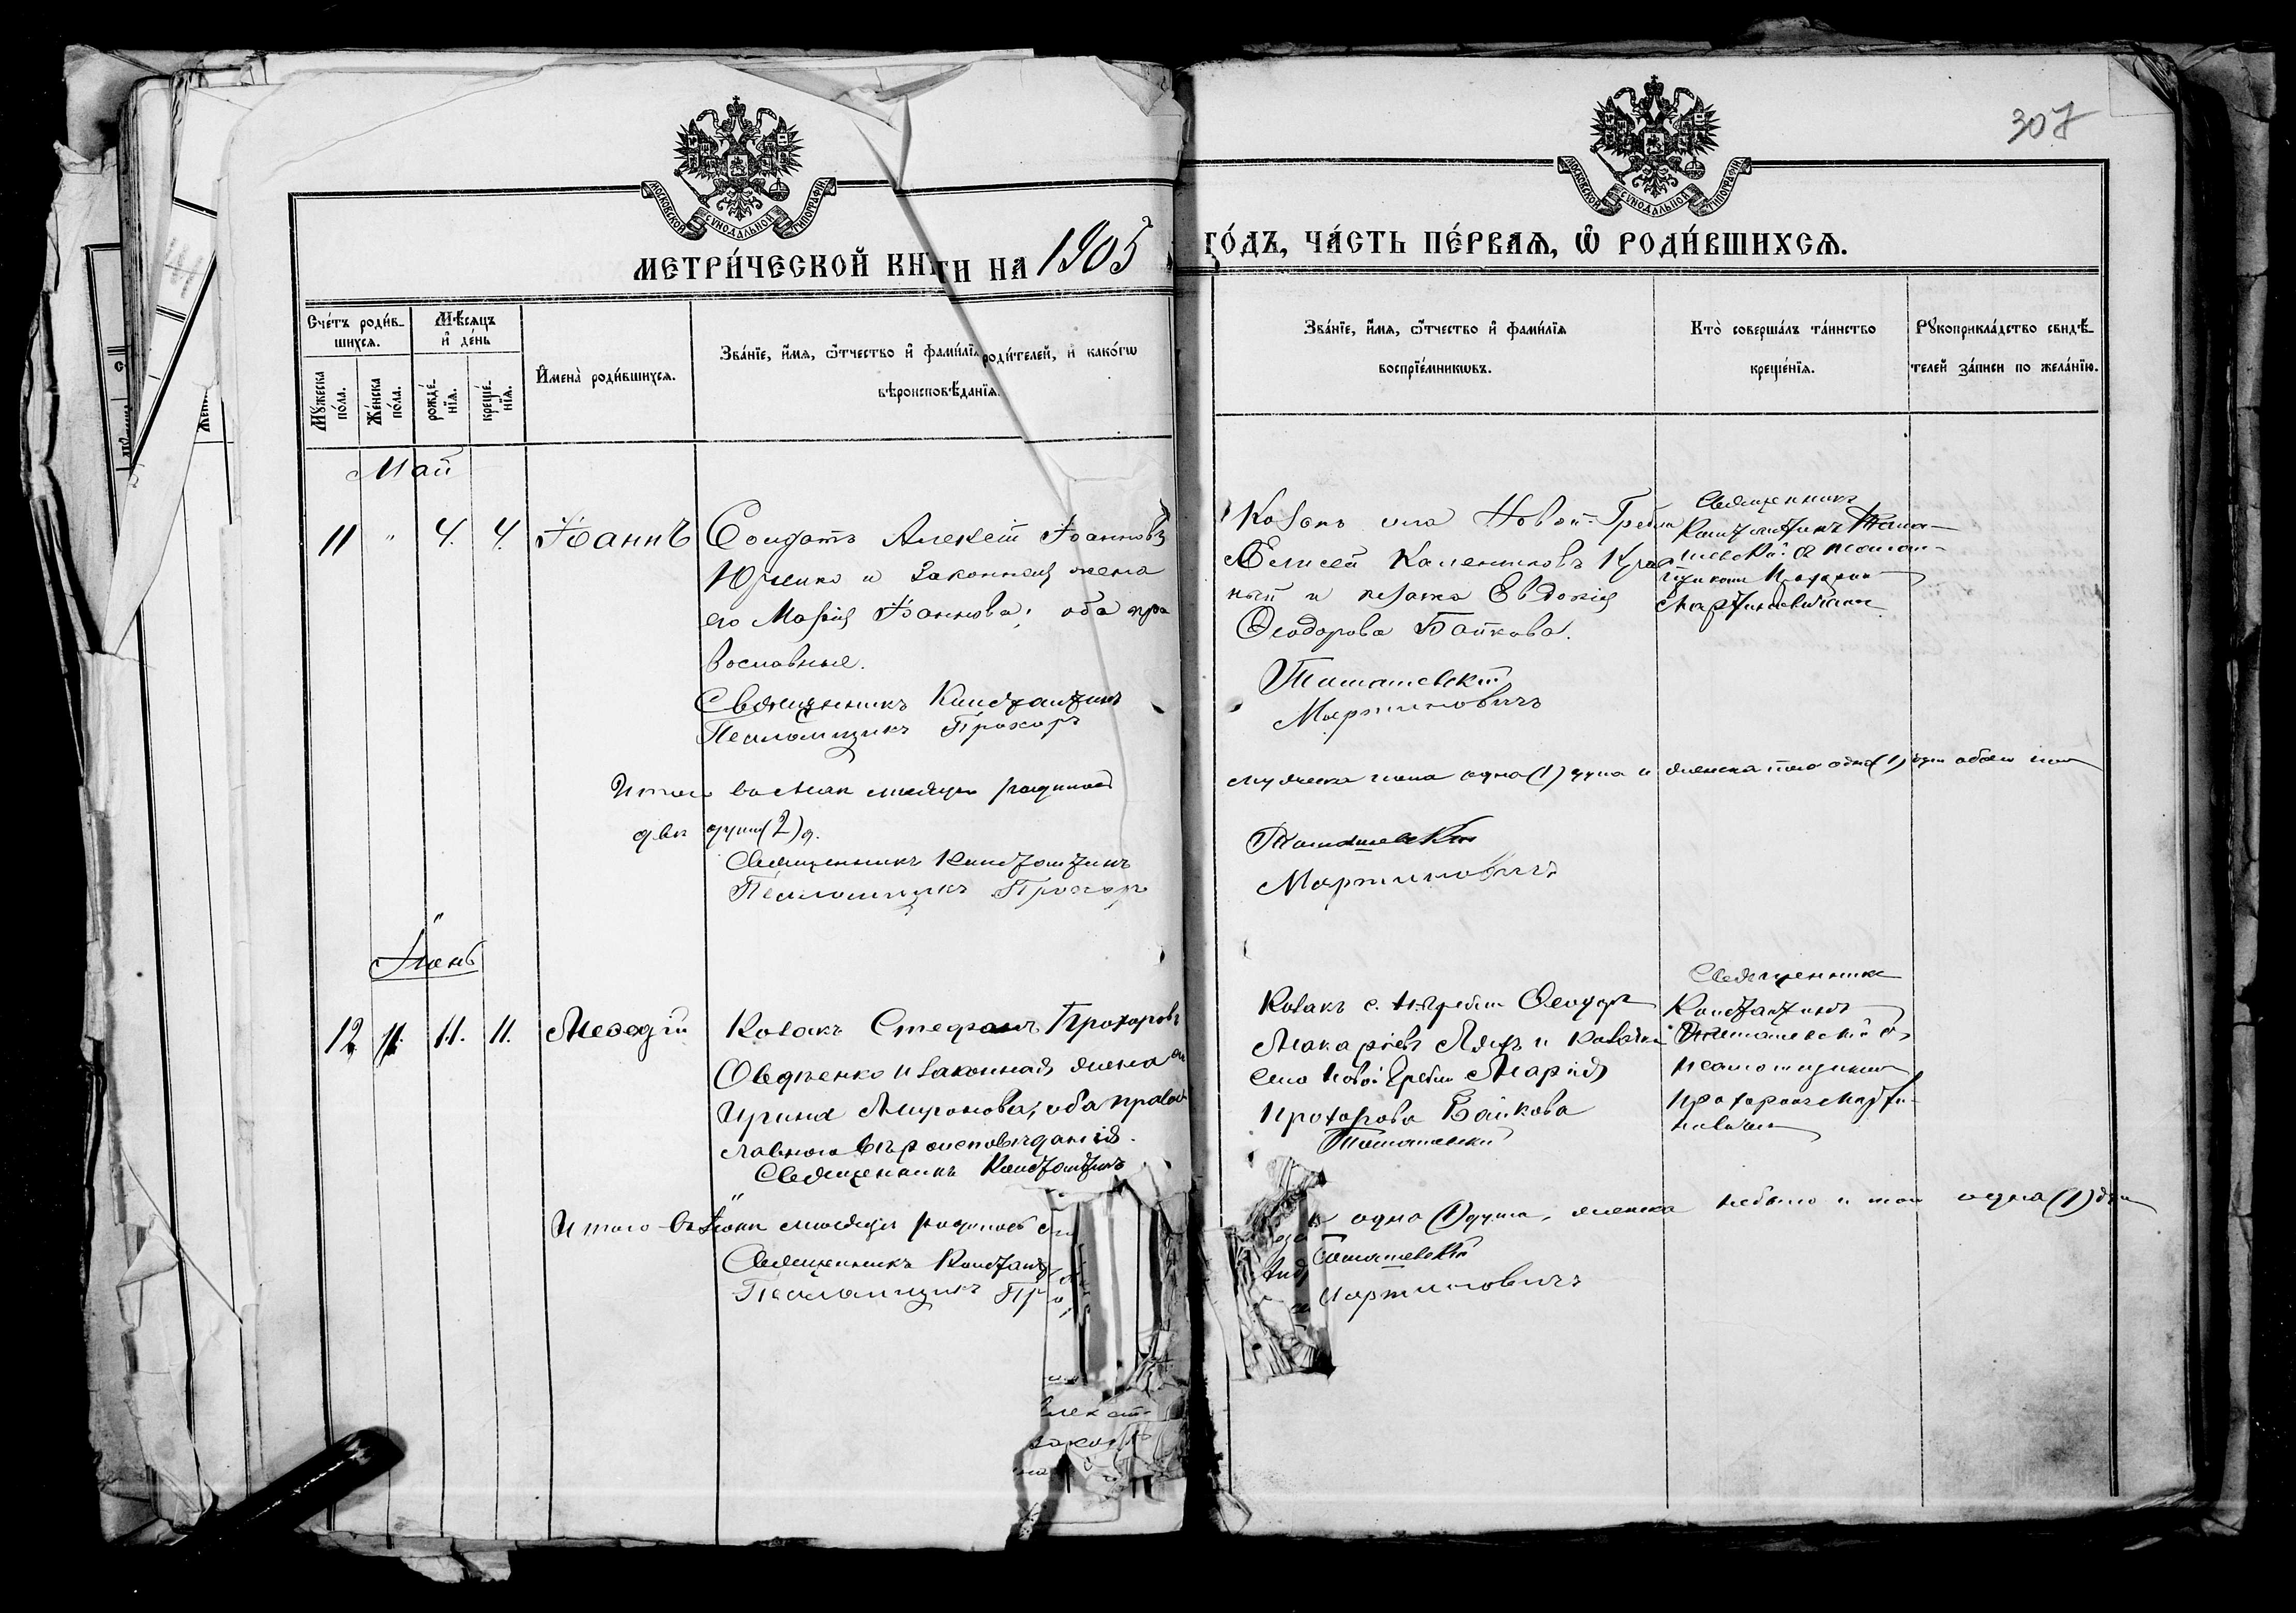 307
МОСКОВСКОЙ СѴНОДАЛЬНОЙ ТИПОГРАФІИ
МОСКОВСКОЙ СѴНОДАЛЬНОЙ ТИПОГРАФІИ
МЕТРИ́ЧЕСКОЙ КНИГИ НА 1905 ГО́ДЪ, ЧА́СТЬ ПЕ́РВАЯ, Ѽ РОДИ́ВШИХСЯ.
Сче́тъ роди́в-
шихся.
Мѣ́сяцъ
и҆ де́нь
Мꙋ́жеска
по́ла.
Же́нска
по́ла.
рожде́-
нїя.
креще́-
нїя.
И҆мена̀ роди́вшихся.
Зва́нїе, и҆́мя, ѻ҆́тчество и҆ фами́лїя роди́телей, и҆ како́гѡ
вѣроисповѣ́данїя.
Зва́нїе, и҆́мя, ѻ҆́тчество и҆ фами́лїя
воспрїе́мникѡвъ.
Кто̀ соверша́лъ та́инство
креще́нїя.
Рꙋкоприкла́дство свидѣ́-
телей за́писи по жела́нїю.
Май
11 " 4. 4. Іоаннъ
Солдатъ Алексей Іоанновъ
Юрченко и законная жена
его Марія Іоаннова; оба пра
вославные.
Священникъ Константинъ
Псаломщикъ Прохоръ
Козакъ села Новой-Гребли
Елисей Калениковъ
и козачка Евдокія
Ѳеодорова Байкова.
Томашевскій
Мартиновичъ
Священникъ
Константинъ Тома-
шевскій с псалом-
щикомъ Прохоромъ
Мартиновичемъ
Итого въ Маѣ месяце родилось мужеска пола одна (1) душа и женска пола одна (1) обоего пола
двѣ души (2) д.
Священникъ Константинъ
Псаломщикъ Прохоръ
Томашевскій
Мартиновичъ
Іюнь
12 11. 11. Меѳодій
Козакъ Стефанъ Прохоровъ
Овдѣенко и законная жена его
Ирина Миронова; оба правос
лавного вѣроисповѣданія.
Священникъ Константинъ
Козакъ с. Н. Гребли Ѳеодоръ
Макаріевъ Ляхъ и козачка
села Новой Гребли Марія
Прохорова Байкова
Томашевскій
Священникъ
Константинъ
Томашевскій съ
псаломщикомъ
Прохоромъ Марти-
новичемъ
Итого въ Іюнѣ месяце родилось одна (1) душа, женска небыло и того одна (1) душа
Священникъ Конст
Псаломщикъ Пр
Томашевскій
Мартиновичъ